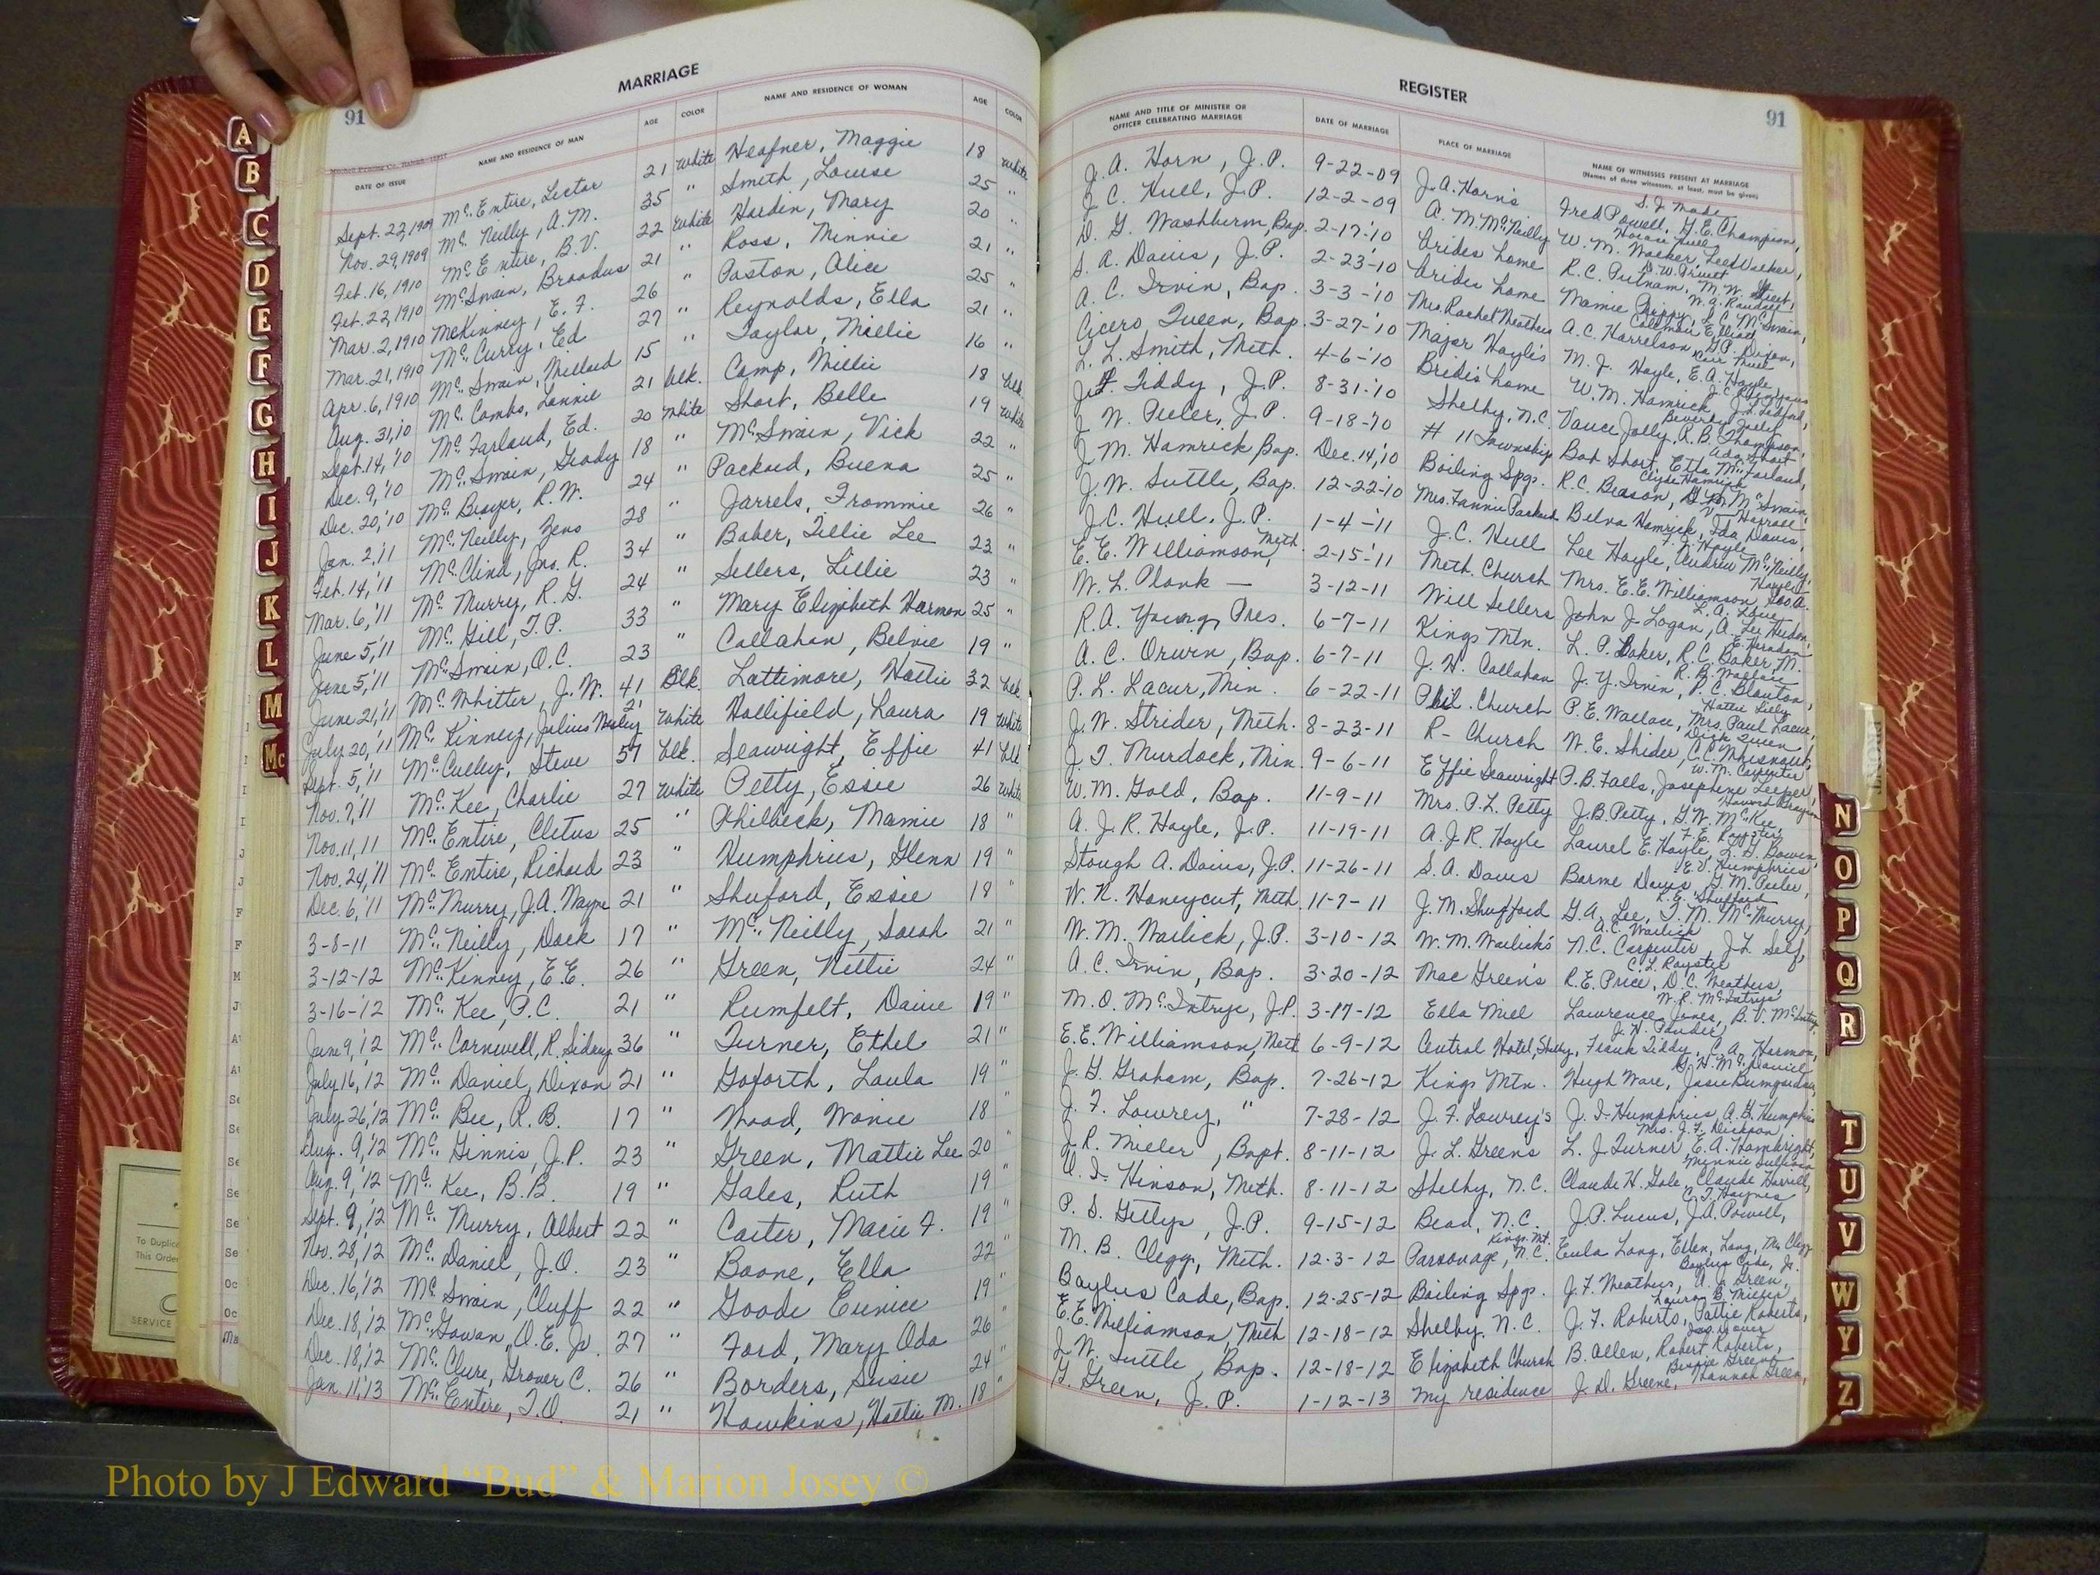 MARRIAGE
91
Mitchell Printing Co., Raleigh
DATE OF ISSUE NAME AND RESIDENCE OF MAN AGE COLOR NAME AND RESIDENCE OF WOMAN AGE COLOR
Sept. 22, 1909 McEntire, Lector 21 White Heafner, Maggie 18 White
Nov. 29, 1909 McNeilly, A.M. 35 " Smith, Louise 25 "
Feb. 16, 1910 McEntire, B.V. 22 White Hardin, Mary 20 "
Feb. 22, 1910 McSwain, Broadus 21 " Ross, Minnie 21 "
Mar. 2, 1910 McKinney, E.F. 26 " Paston, Alice 25 "
Mar. 21, 1910 McCurry, Ed 27 " Reynolds, Ella 21 "
Apr. 6, 1910 McSwain, Millard 15 " Taylor, Millie 16 "
Aug. 31, 10 McCombs, Lonnie 21 blk. Camp, Millie 18 blk.
Sept. 14, '10 McFarland, Ed. 20 White Short, Belle 19 White
Dec. 9, '10 McSwain, Grady 18 " McSwain, Vick 22 "
Dec. 20, '10 McBrayer, R.W. 24 " Packard, Buena 25 "
Jan. 2, '11 McNeilly, Zeno 28 " Jarrels, Frommie 26 "
Feb. 14, '11 McClind, Jno. R. 34 " Baber, Tillie Lee 23 "
Mar. 6, '11 McMurry, R.G. 24 " Sellers, Lillie 23 "
June 5, '11 McGill, T.P. 33 " Mary Elizabeth Harmon 25 "
June 5, '11 McSwain, O.C. 23 " Callahan, Belvie 19 "
June 21, '11 McWhitter, J.W. 41 Blk. Lattimore, Hattie 32 blk
July 20, '11 McKinney, Julius Wesley 21 White Hollifield, Laura 19 White
Sept. 5, '11 McCulley, Steve 57 blk. Seawright, Effie 41 blk
Nov. 7, '11 McKee, Charlie 27 White Petty, Essie 26 White
Nov. 11, 11 McEntire, Cletus 25 " Philbeck, Mamie 18 "
Nov. 24, '11 McEntire, Richard 23 " Humphries, Glenn 19 "
Dec. 6, '11 McMurry, J.A. Wayne 21 " Shuford, Essie 18 "
3-8-11 McNeilly, Dock 17 " McNeilly, Sarah 21 "
3-12-12 McKinney, E.E. 26 " Green, Nettie 24 "
3-16-'12 McKee, P.C. 21 " Rumfelt, Daisie 19 "
June 9, '12 McCornwell, R. Sidney 36 " Turner, Ethel 21 "
July 16, '12 McDaniel, Dixon 21 " Goforth, Laula 19 "
July 26, '12 McBee, R.B. 17 " Wood, Wonie 18 "
Aug. 9, '12 McGinnis, J.P. 23 " Green, Mattie Lee 20 "
Aug. 9, '12 McKee, B.B. 19 " Gales, Ruth 19 "
Sept. 9, '12 McMurry, Albert 22 " Carter, Macie F. 19 "
Nov. 28, '12 McDaniel, J.O. 23 " Boone, Ella 22 "
Dec. 16, '12 McSwain, Cluff 22 " Goode Eunice 19 "
Dec. 18, '12 McGowan, O.E. Jr. 27 " Ford, Mary Oda 26 "
Dec. 18, '12 McClure, Grover C. 26 " Borders, Susie 24 "
Jan. 11, '13 McEntire, T.O. 21 " Hawkins, Hattie M. 18 "
REGISTER
91
NAME AND TITLE OF MINISTER OR OFFICER CELEBRATING MARRIAGE DATE OF MARRIAGE PLACE OF MARRIAGE NAME OF WITNESSES PRESENT AT MARRIAGE
(Names of three witnesses, at least, must be given)
J. A. Horn, J.P. 9-22-09 J.A. Horn's Fred Powell, G.E. Champion, S. J. Made
J. C. Hull, J.P. 12-2-09 A. M. McNeilly W. M. Walker, Lee Walker, Horace Hull
D. G. Washburn, Bap. 2-17-10 brides home R. C. Putnam, M. W. D. W. Privett
S. A. Davis, J.P. 2-23-'10 brides home Mamie Phippy, L.C. McSwain,
A. C. Irvin, Bap. 3-3-'10 Mrs. Rachel Weathers A.C. Harrelson, G.P. Dixon, Coleman Elliott
Cicero Queen, Bap. 3-27-'10 Major Hoyle's M. J. Hoyle, E. A. Hoyle,
L. L. Smith, Meth. 4-6-'10 Brides home W. M. Hamrick, J.L. Ledford,
J.F. Tiddy, J.P. 8-31-'10 Shelby, N.C. Vance Jolly, R.B. Thompson, Beverly Justice
J. W. Peeler, J.P. 9-18-'10 # 11 Township Bob Short, Etta McFarland, Ada Short
J. M. Hamrick Bap. Dec. 14, '10 Boiling Spgs. R. C. Beason, McSwain, Clyde Hamrick
J. W. Suttle, Bap. 12-22-'10 Mrs. Fannie Packard Belva Hamrick, Ida Davis,
J.C. Hull, J.P. 1-4-'11 J.C. Hull Lee Hoyle, Andrew McNeilly,
E. E. Williamson, Meth. 2-15-'11 Meth. Church Mrs. E. E. Williamson, Geo. A. Hoyle
W. L. Plonk — 3-12-11 Will Sellers John J. Logan, A. Lee Herdon,
R.A. Young, Pres. 6-7-11 Kings Mtn. L. P. Baker, R.C. Baker, M.
A. C. Orwin, Bap. 6-7-11 J. H. Callahan J. Y. Irvin, P. C. Blanton, R. B. Wallace
P. L. Lacur, Min. 6-22-11 Phil. Church P. E. Wallace, Mrs. Paul Lacur, Hattie Lilly
J.W. Strider, Meth. 8-23-11 R- Church W. E. Shider, C.C. Whisnant, Dick Queen
J. T. Murdock, Min. 9-6-11 Effie Seawright P. B. Falls, Josephine Leeper, W. M. Carpenter
W. M. Gold, Bap. 11-9-11 Mrs. P. L. Petty J.B. Petty, G.W. McKee,
A. J. R. Hoyle, J.P. 11-19-11 A. J. R. Hoyle Laurel E. Hoyle, L. G. Bowen, F. E. Royster
Stough A. Davis, J.P. 11-26-11 S. A. Davis Barme Davis, G. M. Peeler, E. V. Humphries
W. R. Honeycut, Meth. 11-7-11 J. M. Shufford G. A. Lee, T. M. McMurry, R. E. Shufford
W. M. Wailick, J.P. 3-10-12 W. M. Wailick's N.C. Carpenter, J. L. Self, A. C. Wailick
A. C. Irvin, Bap. 3-20-12 Mac Green's R. E. Price, D. C. Weathers, C. L. Royster
M. O. McIntrye, J.P. 3-17-12 Ella Miel Lawrence Jones, B. V. McIntry, W. R. McIntrye
E.E. Williamson, Meth 6-9-12 Central Hotel, Shelby, Frank Tiddy, C. A. Harmon,
J. G. Graham, Bap. 7-26-12 Kings Mtn. Hugh Ware, Josie Bumgardner, McDaniel
J. F. Lowrey, " 7-28-12 J. F. Lowrey's J. I. Humphries, A.B. Humphries
J. R. Mieler, Bapt. 8-11-12 J. L. Green's L. J. Turner E. A. Hambright, Mrs. J. F. Dickson
V. I. Hinson, Meth. 8-11-12 Shelby, N.C. Claude H. Gale, Claude Harrill,
P. S. Gettys, J.P. 9-15-12 Bead, N.C. J.P. Lucus, J.A. Powell, C. T. Haynes
M. B. Clegg, Meth. 12-3-12 Parsonage, Kings Mt. N.C. Eula Long, Ellen Long, Mrs Clegg
Baylus Cade, Bap. 12-25-12 Boiling Spgs. J. F. Weathers, A. J. Green, Baylus Cade, Jr.
E.E. Williamson, Meth 12-18-12 Shelby, N.C. J. F. Roberts, Pattie Roberts,
J. W. Suttle, Bap. 12-18-12 Elizabeth Church B. Allen, Robert Roberts,
G. Green, J.P. 1-12-13 My residence J. D. Greene, Hannah Green,
A
B
C
D
E
F
G
H
I
J
K
L
M
Mc
N
O
P
Q
R
T
U
V
W
Y
Z
To Duplic
This Order
SERVICE
Photo by J Edward "Bud" & Marion Josey ©